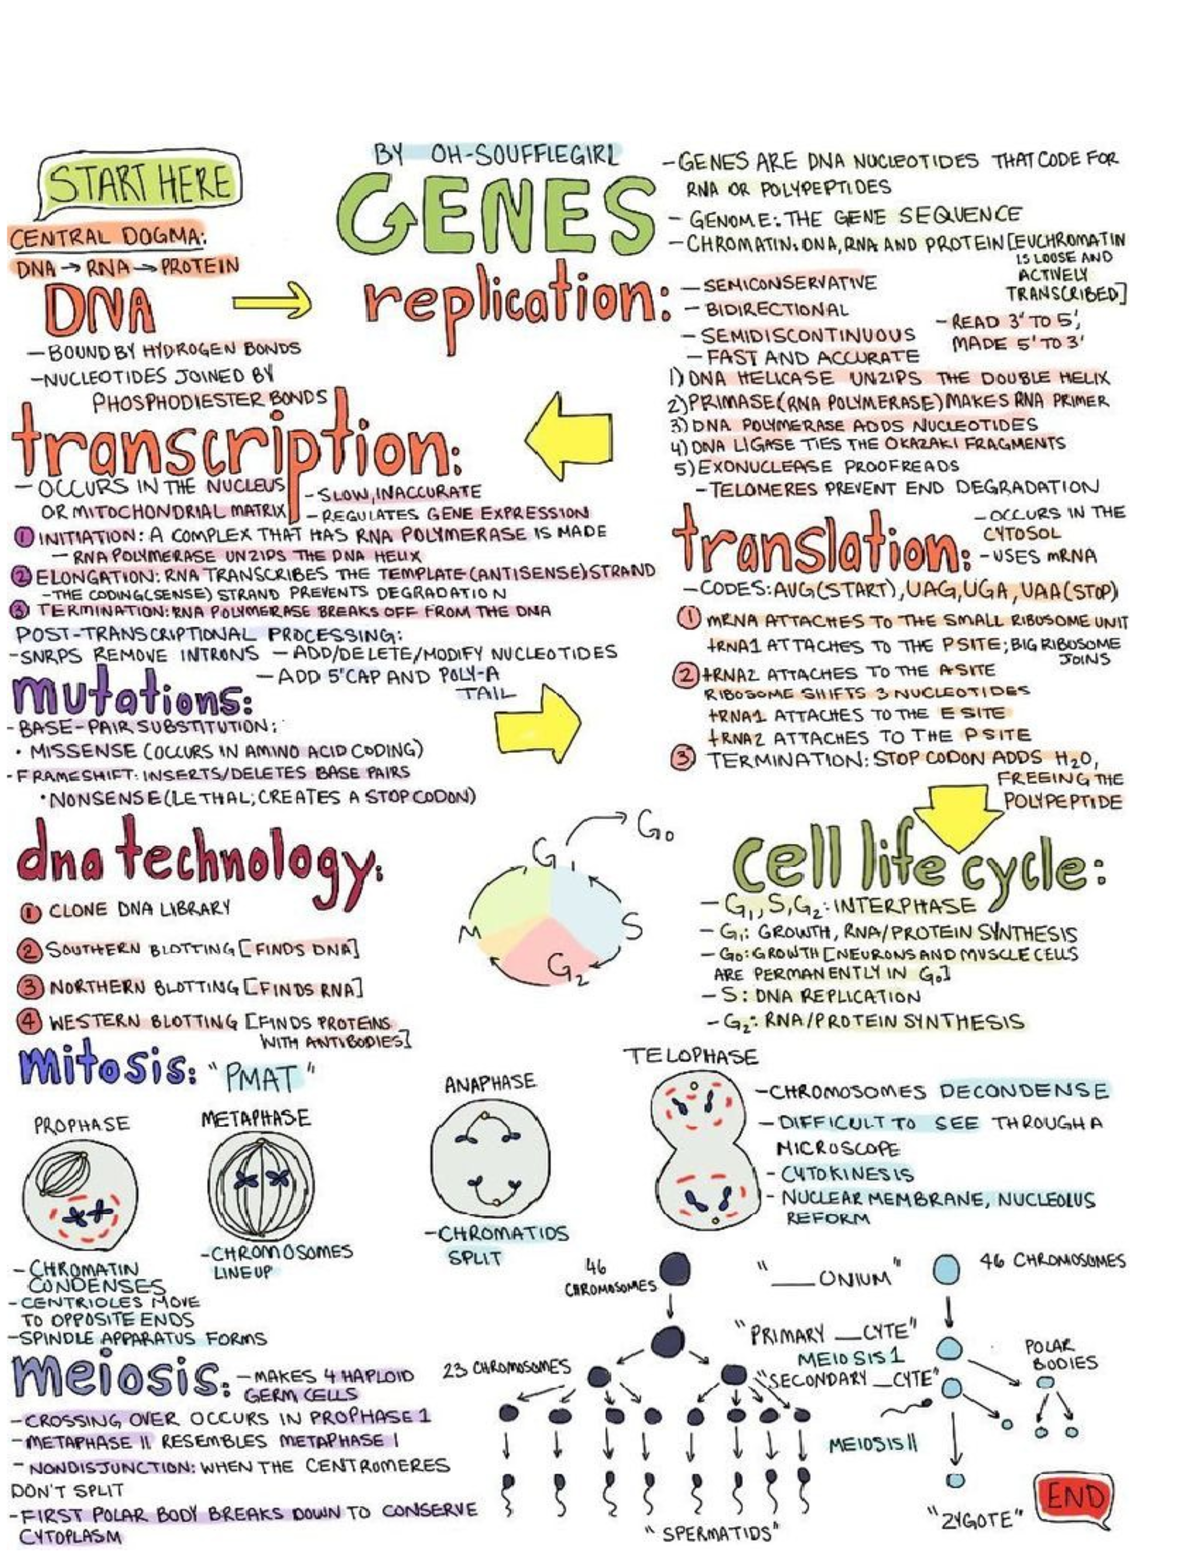 START HERE
CENTRAL DOGMA:
DNA → RNA → PROTEIN
DNA
- BOUND BY HYDROGEN BONDS
- NUCLEOTIDES JOINED BY
PHOSPHODIESTER BONDS
BY OH-SOUFFLEGIRL
GENES
- GENES ARE DNA NUCLEOTIDES THAT CODE FOR
RNA OR POLYPEPTIDES
- GENOME: THE GENE SEQUENCE
- CHROMATIN: DNA, RNA AND PROTEIN [EUCHROMATIN
IS LOOSE AND
ACTIVELY
TRANSCRIBED]
replication:
- SEMICONSERVATIVE
- BIDIRECTIONAL
- SEMIDISCONTINUOUS
- FAST AND ACCURATE
- READ 3' TO 5',
MADE 5' TO 3'
1) DNA HELICASE UNZIPS THE DOUBLE HELIX
2) PRIMASE (RNA POLYMERASE) MAKES RNA PRIMER
3) DNA POLYMERASE ADDS NUCLEOTIDES
4) DNA LIGASE TIES THE OKAZAKI FRAGMENTS
5) EXONUCLEASE PROOFREADS
- TELOMERES PREVENT END DEGRADATION
transcription:
- OCCURS IN THE NUCLEUS
OR MITOCHONDRIAL MATRIX
- SLOW, INACCURATE
- REGULATES GENE EXPRESSION
1 INITIATION: A COMPLEX THAT HAS RNA POLYMERASE IS MADE
- RNA POLYMERASE UNZIPS THE DNA HELIX
2 ELONGATION: RNA TRANSCRIBES THE TEMPLATE (ANTISENSE) STRAND
- THE CODING (SENSE) STRAND PREVENTS DEGRADATION
3 TERMINATION: RNA POLYMERASE BREAKS OFF FROM THE DNA
POST-TRANSCRIPTIONAL PROCESSING:
- SNRPS REMOVE INTRONS - ADD/DELETE/MODIFY NUCLEOTIDES
- ADD 5' CAP AND POLY-A
TAIL
translation:
- OCCURS IN THE
CYTOSOL
- USES mRNA
- CODES: AUG (START), UAG, UGA, UAA (STOP)
1 mRNA ATTACHES TO THE SMALL RIBOSOME UNIT
tRNA1 ATTACHES TO THE P SITE; BIG RIBOSOME
JOINS
2 tRNA2 ATTACHES TO THE A SITE
RIBOSOME SHIFTS 3 NUCLEOTIDES
tRNA1 ATTACHES TO THE E SITE
tRNA2 ATTACHES TO THE P SITE
3 TERMINATION: STOP CODON ADDS H2O,
FREEING THE
POLYPEPTIDE
mutations:
- BASE-PAIR SUBSTITUTION:
• MISSENSE (OCCURS IN AMINO ACID CODING)
- FRAMESHIFT: INSERTS/DELETES BASE PAIRS
• NONSENSE (LETHAL; CREATES A STOP CODON)
dna technology:
1 CLONE DNA LIBRARY
2 SOUTHERN BLOTTING [FINDS DNA]
3 NORTHERN BLOTTING [FINDS RNA]
4 WESTERN BLOTTING [FINDS PROTEINS
WITH ANTIBODIES]
G1
G0
S
G2
M
cell life cycle:
- G1, S, G2: INTERPHASE
- G1: GROWTH, RNA/PROTEIN SYNTHESIS
- G0: GROWTH [NEURONS AND MUSCLE CELLS
ARE PERMANENTLY IN G0]
- S: DNA REPLICATION
- G2: RNA/PROTEIN SYNTHESIS
mitosis: "PMAT"
PROPHASE
METAPHASE
ANAPHASE
TELOPHASE
- CHROMATIN
CONDENSES
- CENTRIOLES MOVE
TO OPPOSITE ENDS
- SPINDLE APPARATUS FORMS
- CHROMOSOMES
LINE UP
- CHROMATIDS
SPLIT
- CHROMOSOMES DECONDENSE
- DIFFICULT TO SEE THROUGH A
MICROSCOPE
- CYTOKINESIS
- NUCLEAR MEMBRANE, NUCLEOLUS
REFORM
meiosis:
- MAKES 4 HAPLOID
GERM CELLS
- CROSSING OVER OCCURS IN PROPHASE 1
- METAPHASE II RESEMBLES METAPHASE I
- NONDISJUNCTION: WHEN THE CENTROMERES
DON'T SPLIT
- FIRST POLAR BODY BREAKS DOWN TO CONSERVE
CYTOPLASM
46
CHROMOSOMES
"___ONIUM"
46 CHROMOSOMES
"PRIMARY __CYTE"
MEIOSIS 1
23 CHROMOSOMES
"SECONDARY _CYTE"
POLAR
BODIES
MEIOSIS II
"SPERMATIDS"
"ZYGOTE"
END